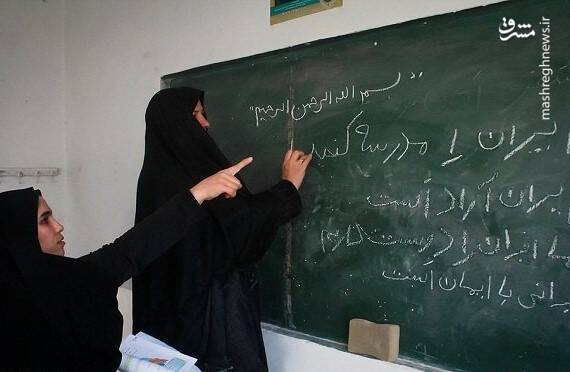 مشرق
mashreghnews.ir
"بسم الله الرحمن الرحیم"
ایران را مدرسه کنید
ایران آزاد است
ما ایران را دوست داریم
با ایمان است